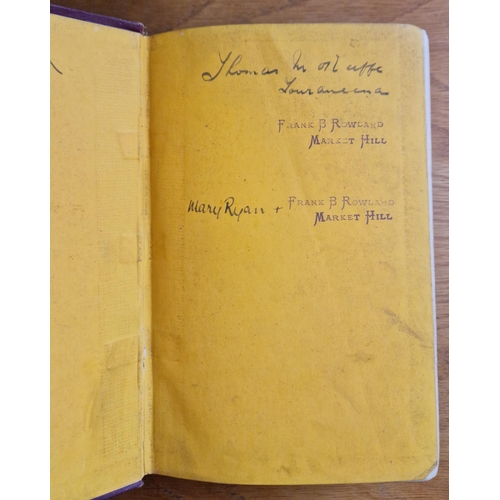 Thomas M
Frank B Rowland
Market Hill
Mary Ryan + Frank B Rowland
Market Hill